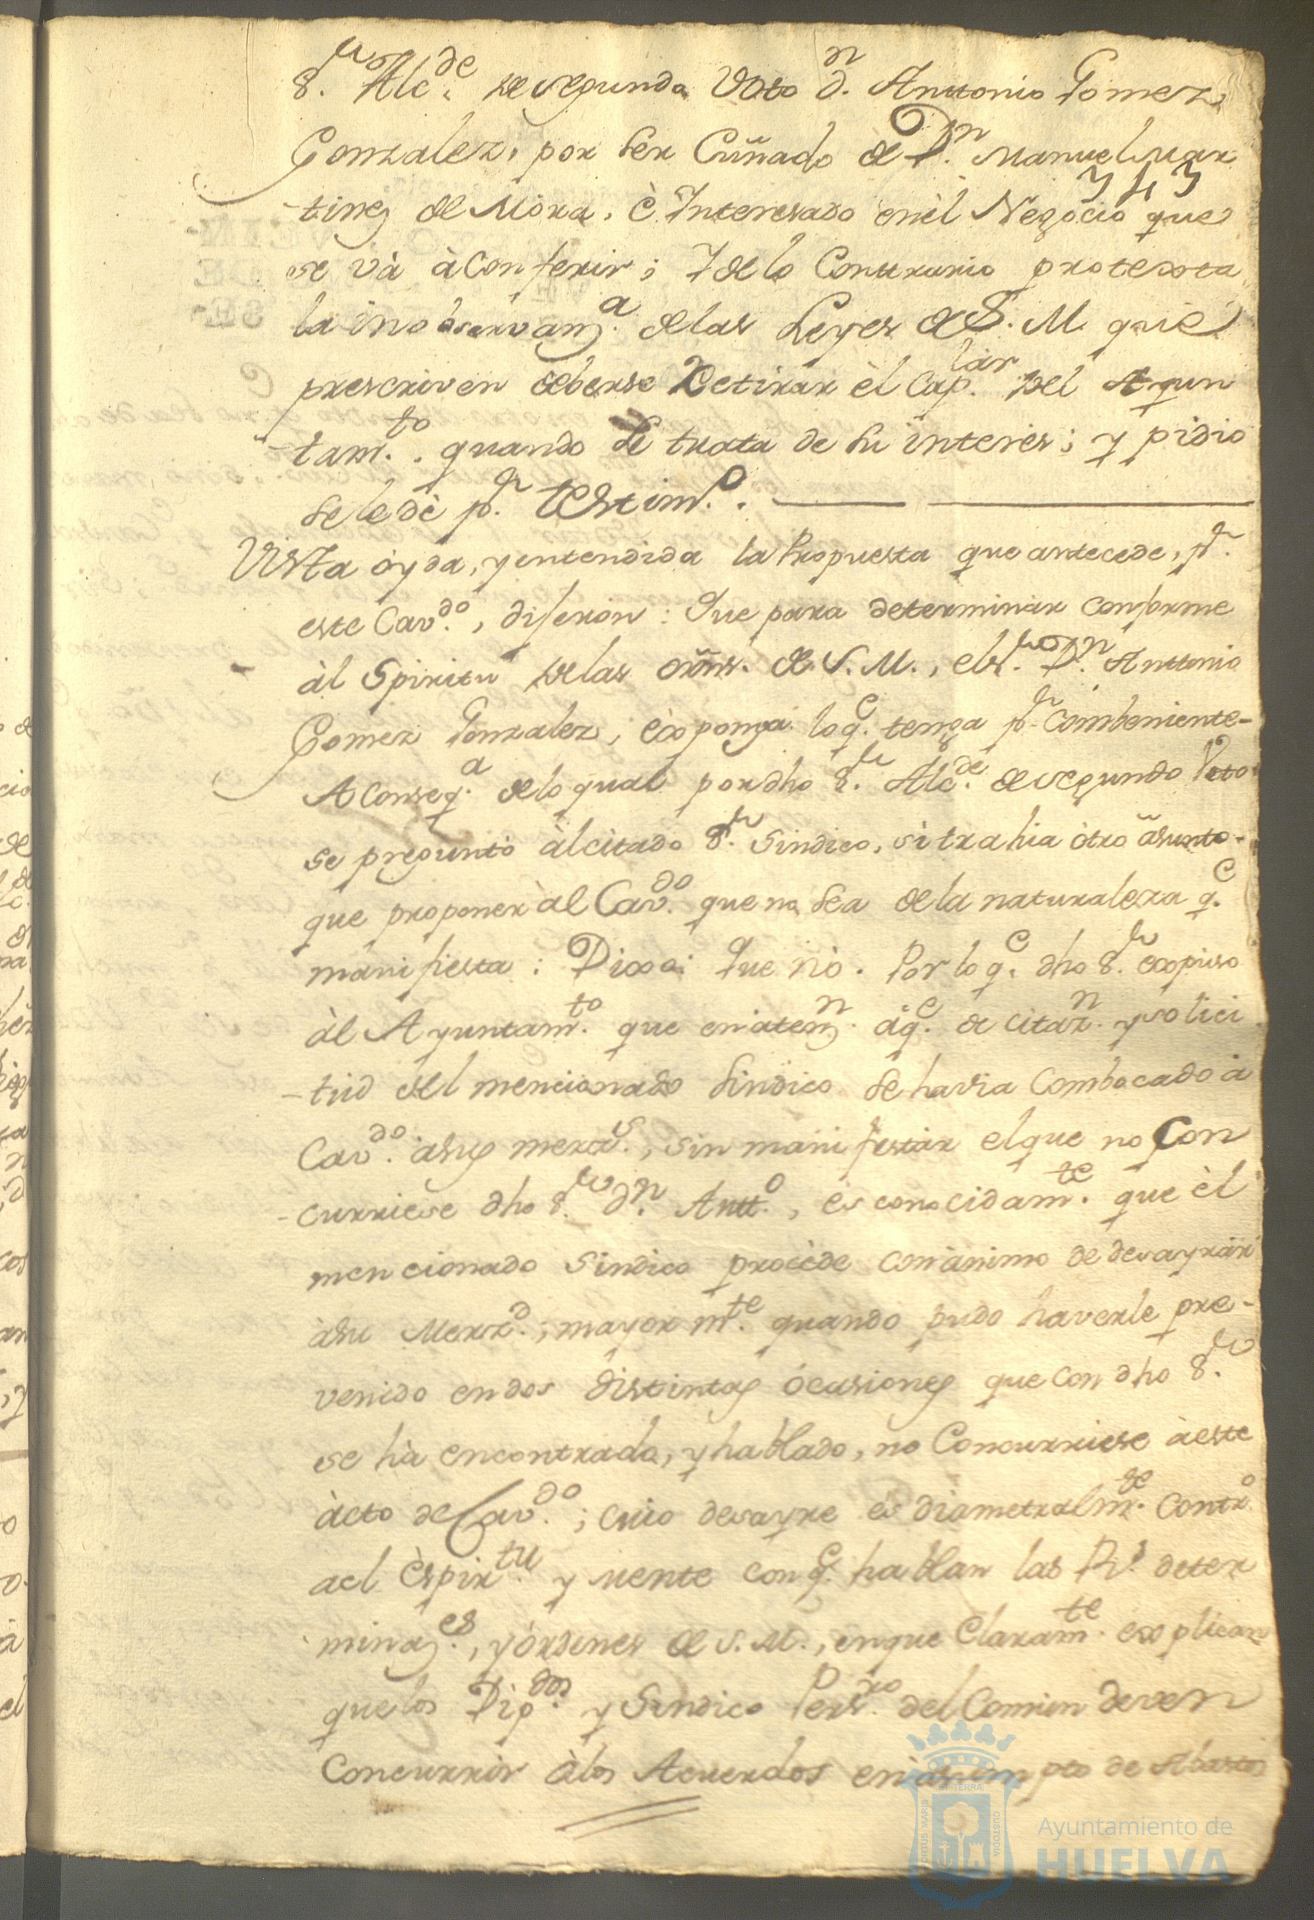 S.ʳ Alc.ᵈᵉ de segundo Voto d.ⁿ Anttonio Gomez
Gonzalez, por ser Cuñado de D.ⁿ Manuel Mar
343
-tinez de Mora, è Interesado en èl Negocio que
se và à conferir; Y de lo Conttrario protexta
la inobservanz.ᵃ de las Leyes de S. M. que
prescriven deberse Retirar èl Cap.ˡᵃʳ del Ayun
-tam.ᵗᵒ quando se trata de su interes; y pidio
se le dè p.ʳ testim.º
Vista oyda, y entendida la Propuesta que antecede, p.ʳ
este Cav.ᵈᵒ, dijeron: Que para determinar conforme
àl Spiritu de las orñns. de S. M., el s.ʳ D.ⁿ Anttonio
Gomez Gonzalez, exponga lo q.ᵉ tenga p.ʳ combeniente-
A conseq.ᵃ de lo qual por dho S.ʳ Alc.ᵈᵉ de segundo Voto
se preguntò àl citado S.ʳ Sindico, si trahia òtro asunto-
que proponer àl Cav.ᵈᵒ que no sea de la naturaleza q.ᵉ
manifiesta: Dixo: Que nò. Por lo q.ᵉ dho S.ʳ expuso
àl Ayuntam.ᵗᵒ que en aten.ⁿ à q.ᵉ de citaz.ⁿ y solici
-tud del mencionado Sindico se havia Combocado à
Cav.ᵈᵒ à sus merz.ˢ, sin manifestar el que no Con
-curriese dho S.ʳ D.ⁿ Antt.º, es conocidam.ᵗᵉ que èl
mencionado Sindico procède con ànimo de desayrar
à su Merz.ᵈ; mayorm.ᵗᵉ quando pudo haverle pre-
venido en dos distintas òcasiones que con dho S.ʳ
se hà encontrado, y hablado, no Concurriese à este
àcto de Cav.ᵈᵒ; cuio desayre es diametralm.ᵗᵉ contr.º
a el Espir.ᵗᵘ y mente con q.ᵉ hablan las R.ˢ deter
minaz.ᵉˢ, y òrdenes de S. M., en que Claram.ᵗᵉ explican
que los Dip.ᵈᵒˢ y Sindico Pers.ʳᵒ del Comun deven
Concurrir à los Acuerdos en àsumpto de Abastos
Ayuntamiento de
HUELVA